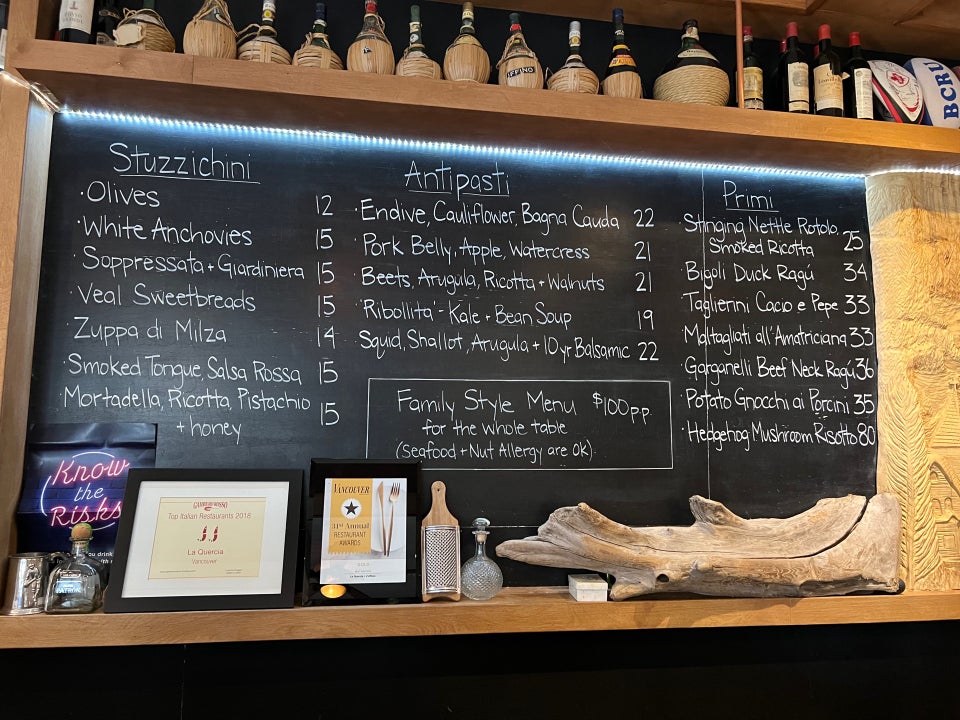 Stuzzichini
·Olives 12
·White Anchovies 15
·Soppressata + Giardiniera 15
·Veal Sweetbreads 15
·Zuppa di Milza 14
·Smoked Tongue, Salsa Rossa 15
·Mortadella, Ricotta, Pistachio
+ honey 15
Antipasti
·Endive, Cauliflower, Bagna Cauda 22
·Pork Belly, Apple, Watercress 21
·Beets, Arugula, Ricotta + Walnuts 21
·'Ribollita' - Kale + Bean Soup 19
Squid, Shallot, Arugula + 10 yr Balsamic 22
Family Style Menu $100 pp
for the whole table
(Seafood + Nut Allergy are OK).
Primi
Stinging Nettle Rotolo,
Smoked Ricotta 25
·Bigoli Duck Ragú 34
·Taglierini Cacio e Pepe 33
·Maltagliati all'Amatriciana 33
·Garganelli Beef Neck Ragú 36
·Potato Gnocchi ai Porcini 35
·Hedgehog Mushroom Risotto 80
RUFFINO
BCRU
Know
the
Risks
you drink
PATRÓN
GAMBERO ROSSO
Top Italian Restaurants 2018
La Quercia
Vancouver
VANCOUVER
31st Annual
RESTAURANT
AWARDS
GOLD